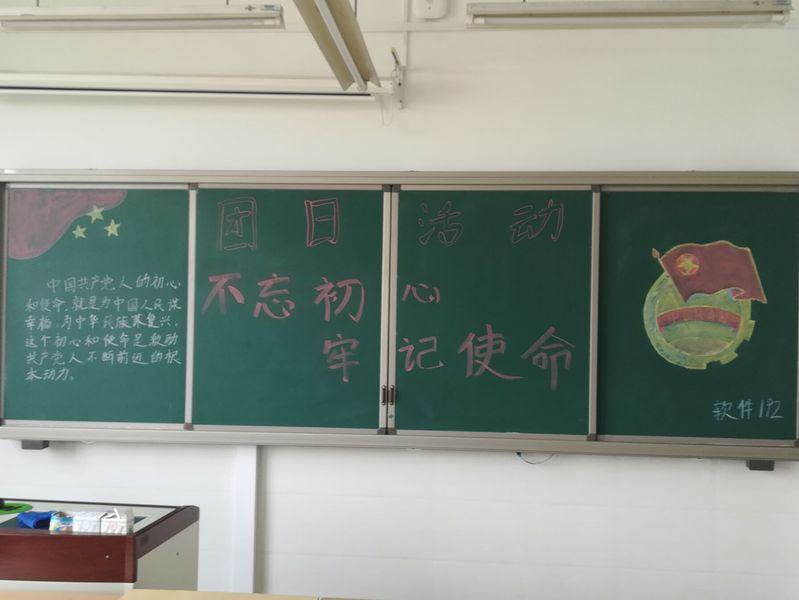 中国共产党人的初心
和使命,就是为中国人民谋
幸福,为中华民族谋复兴。
这个初心和使命是激励
共产党人不断前进的根
本动力。
团日活动
不忘初心
牢记使命
软件192